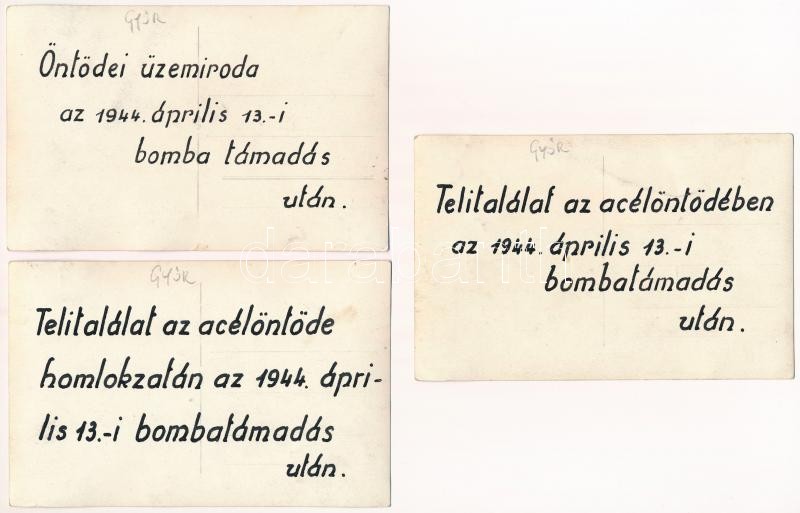 GYŐR
Öntödei üzemiroda
az 1944. április 13.-i
bomba támadás
után.
GYŐR
Telitalálat az acélöntöde
homlokzatán az 1944. ápri-
lis 13.-i bombatámadás
után.
GYŐR
Telitalálat az acélöntödében
az 1944. április 13.-i
bombatámadás
után.
darabanth